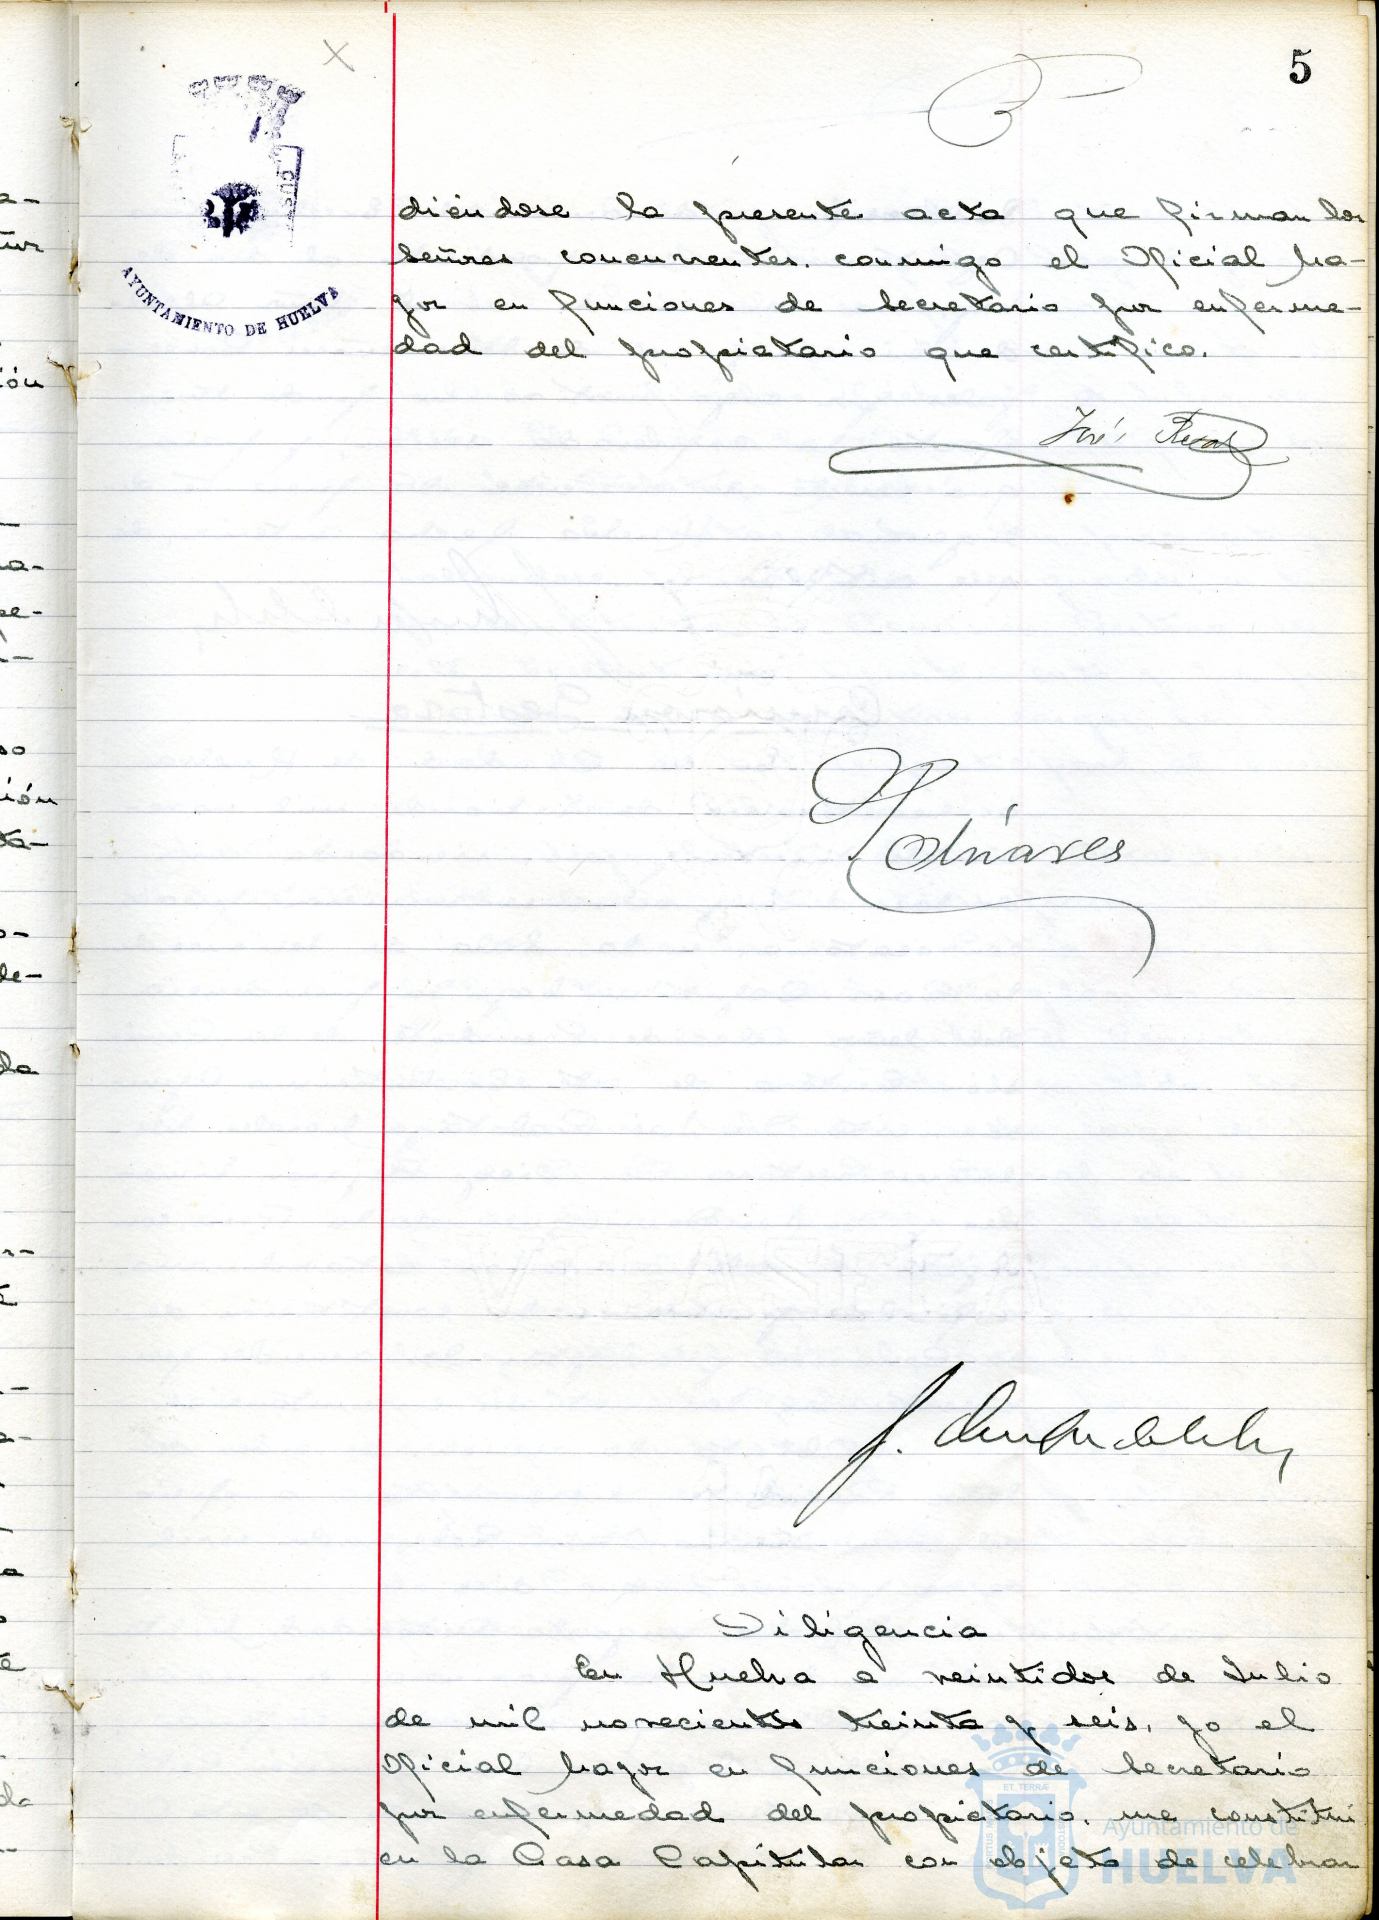 5
AYUNTAMIENTO DE HUELVA
diéndose la presente acta que firman los
señores concurrentes. conmigo el Oficial Ma-
yor en funciones de Secretario por enferme-
dad del propietario que certifico.
José
Olivares
J.
Diligencia
En Huelva a veintidos de Julio
de mil novecientos treinta y seis, yo el
Oficial Mayor en funciones de Secretario
por enfermedad del propietario, me constitui
en la Casa Capitular con objeto de celebrar
Ayuntamiento de
HUELVA